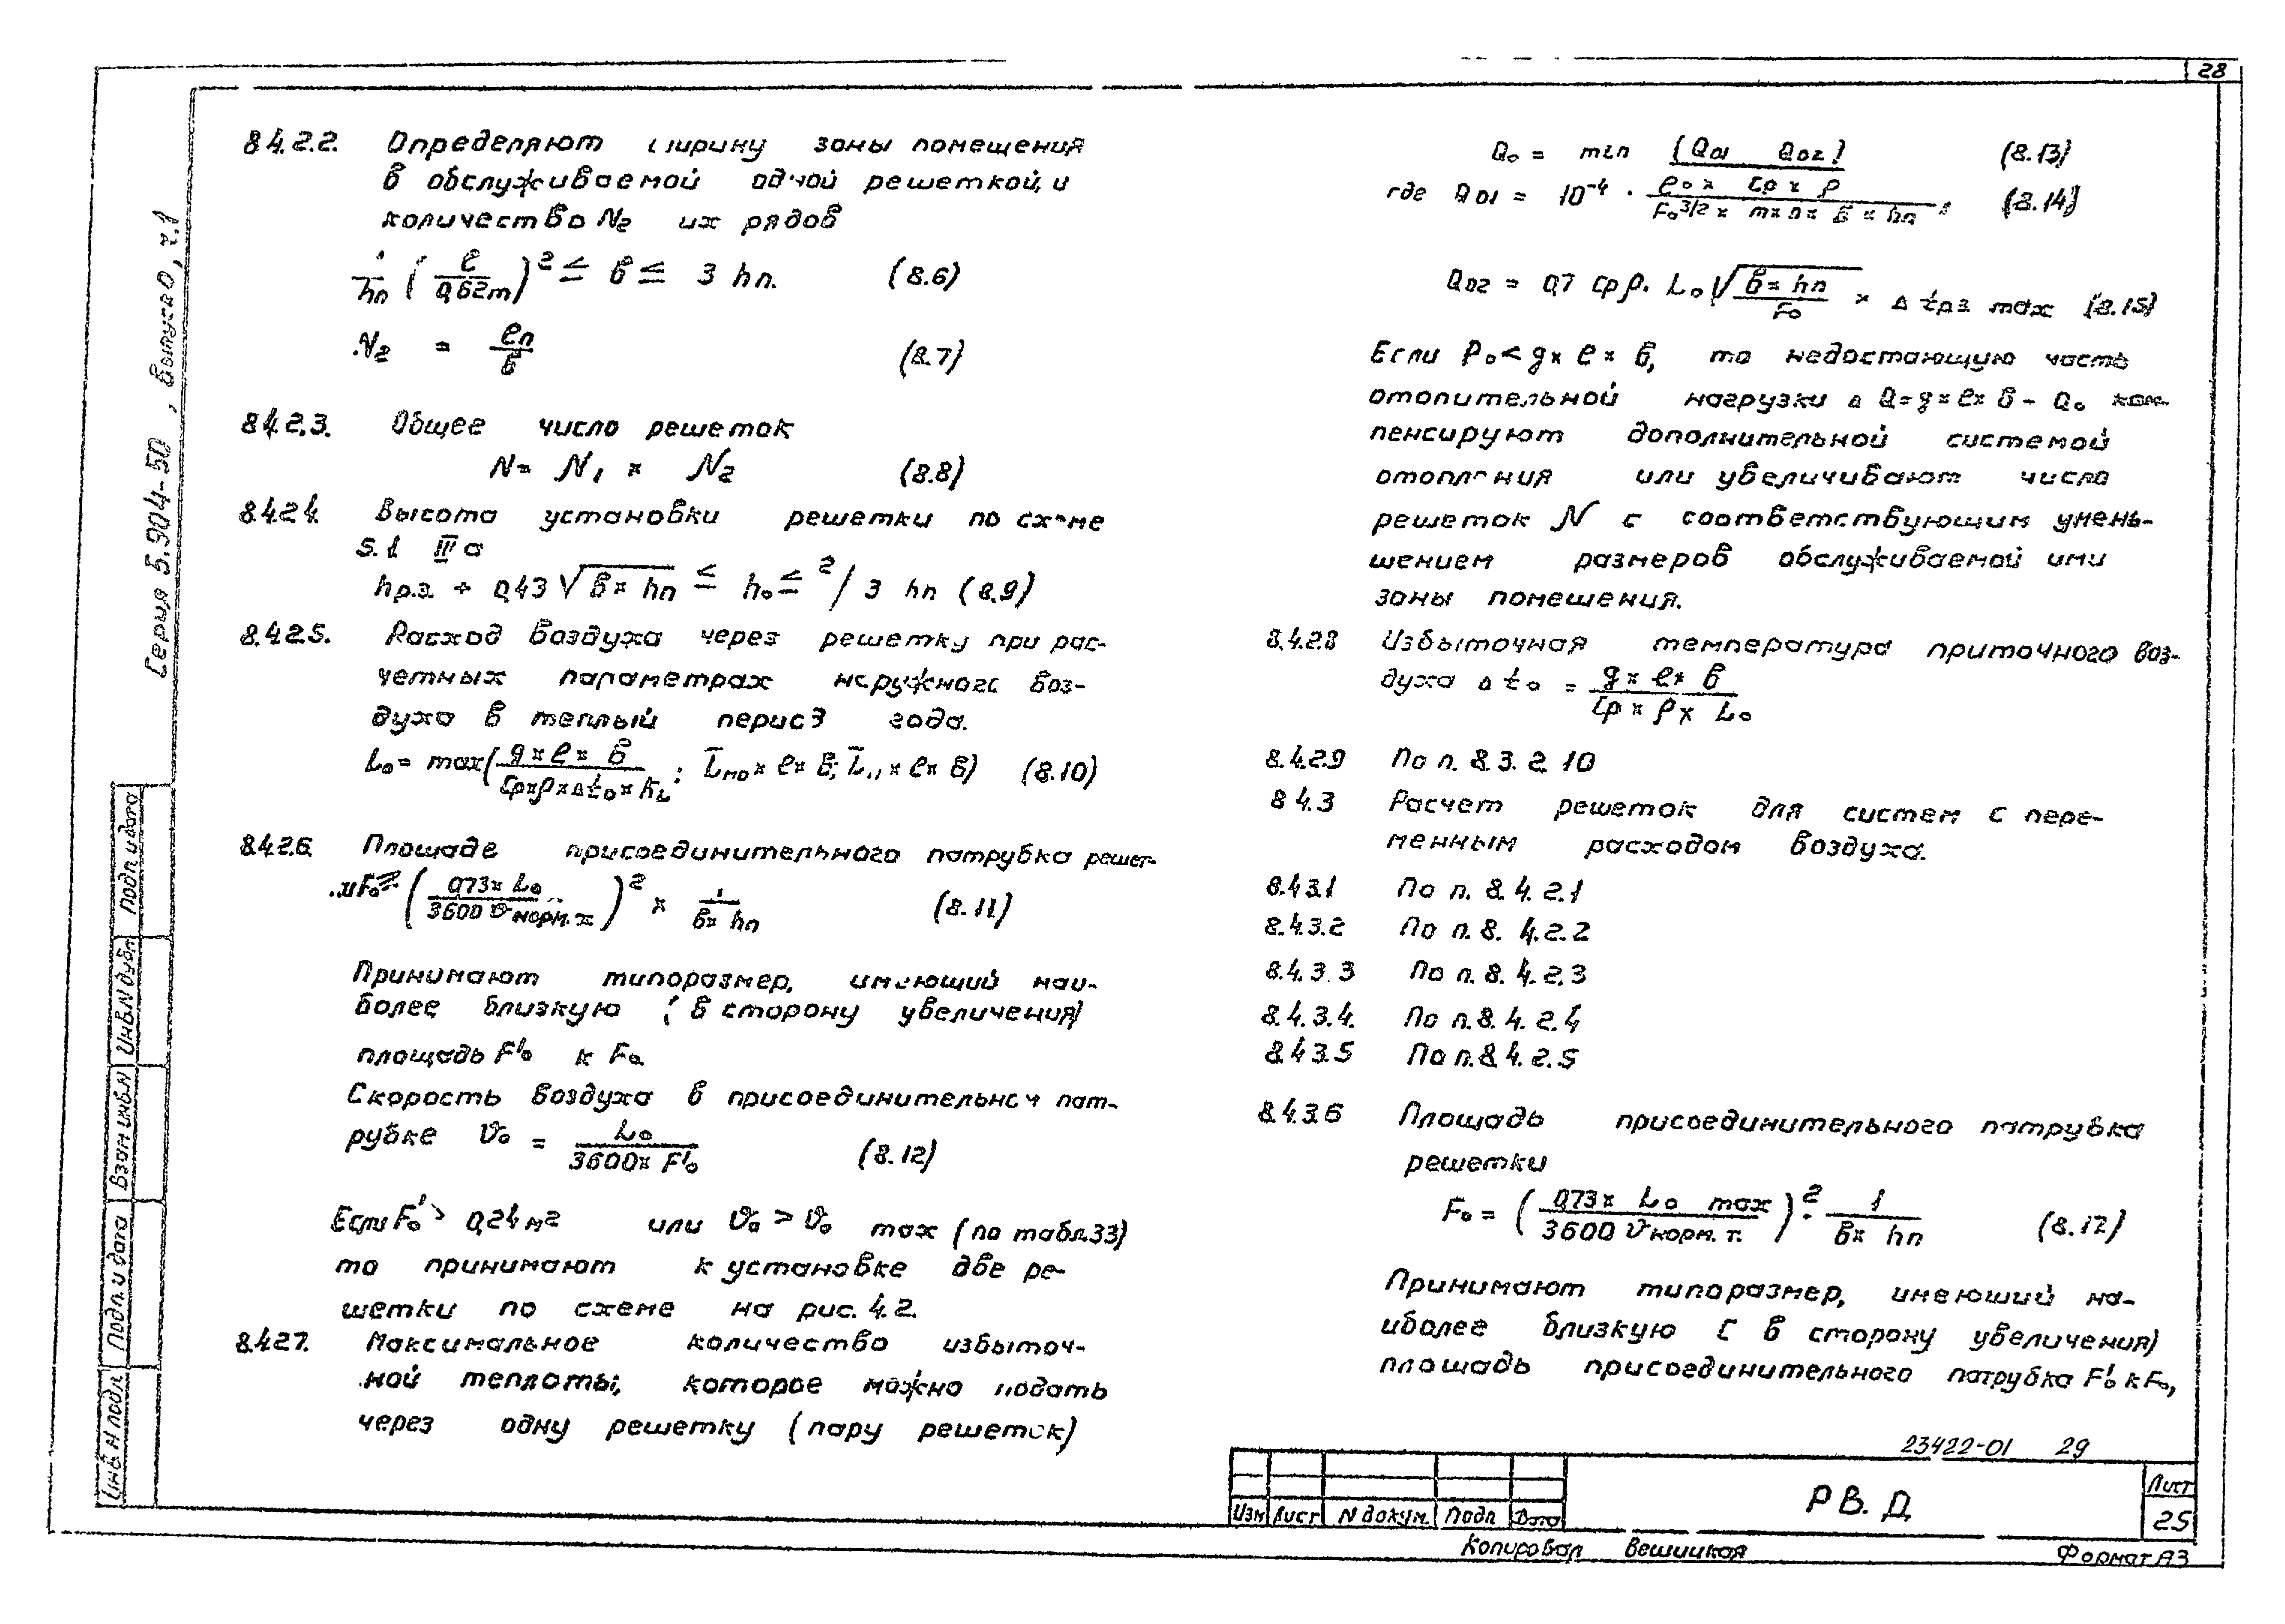 28
8.4.2.2. Определяют ширину зоны помещения
в обслуживаемой одной решеткой, и
количество N₂ их рядов
1/hп (ℓ/0,62m)² ≤ в ≤ 3 hп. (8.6)
N₂ = ℓп/в (8.7)
8.4.2.3. Общее число решеток
N = N₁ × N₂ (8.8)
8.4.2.4. Высота установки решетки по схеме
5.1 III а
hр.з. + 0,43 √в × hп ≤ h₀ ≤ 2/3 hп (8.9)
8.4.2.5. Расход воздуха через решетку при рас-
четных параметрах наружного воз-
духа в теплый период года.
L₀ = max (g × ℓ × в / Cp × ρ × Δt₀ × KL; L̄мо × ℓ × в; × ℓ × в) (8.10)
8.4.2.6. Площаде присоединительного патрубка решет-
ки F₀ ≥ (0,73 × L₀ / 3600 𝜗норм.х)² × 1/в × hп (8.11)
Принимают типоразмер, имеющий наи-
более близкую (в сторону увеличения)
площадь F'₀ к F₀.
Скорость воздуха в присоединительном пат-
рубке 𝜗₀ = L₀ / 3600 × F'₀ (8.12)
Если F₀' > 0,24 м² или 𝜗₀ > 𝜗₀ max (по табл.33)
то принимают к установке две ре-
шетки по схеме на рис. 4.2.
8.4.2.7. Максимальное количество избыточ-
ной теплоты, которое можно подать
через одну решетку (пару решеток)
Q₀ = min (Q₀₁ Q₀₂) (8.13)
где Q₀₁ = 10⁻⁴ · ℓ₀ × Cp × ρ / F₀^3/2 × m × n × в × hп, (8.14)
Q₀₂ = 0,7 Cp ρ. L₀ √в × hп / F₀ × Δ tр.з. max (8.15)
Если P₀ < g × ℓ × в, то недостающую часть
отопительной нагрузки Δ Q = g × ℓ × в - Q₀ ком-
пенсируют дополнительной системой
отопления или увеличивают число
решеток N с соответствующим умень-
шением размеров обслуживаемой ими
зоны помешения.
8.4.2.8 Избыточная температура приточного воз-
духа Δ t₀ = g × ℓ × в / Cp × ρ × L₀
8.4.2.9 По п. 8.3.2.10
8 4.3 Расчет решеток для систем с пере-
менным расходом воздуха.
8.4 3.1 По п. 8.4.2.1
8.4.3.2 По п. 8.4.2.2
8.4.3.3 По п. 8.4.2.3
8.4.3.4. По п. 8.4.2.4
8.4 3.5 По п. 8.4.2.5
8.4.3.6 Площадь присоединительного патрубка
решетки
F₀ = (0,73 × L₀ max / 3600 𝜗норм. т.)² · 1/в × hп (8.17)
Принимают типоразмер, имеюший на-
иболее близкую ( в сторону увеличения)
площадь присоединительного патрубка F'₀ к F₀,
23422-01 29
Изм Лист N докум. Подп. Дата
РВ. Д
Лист
25
Копировал Вешицкая
Формат А3
Серия 5.904-50, выпуск 0, ч.1
Подп. и дата
Инв.N дубл.
Взам инв.N
Подп. и дата
Инв. N подл.